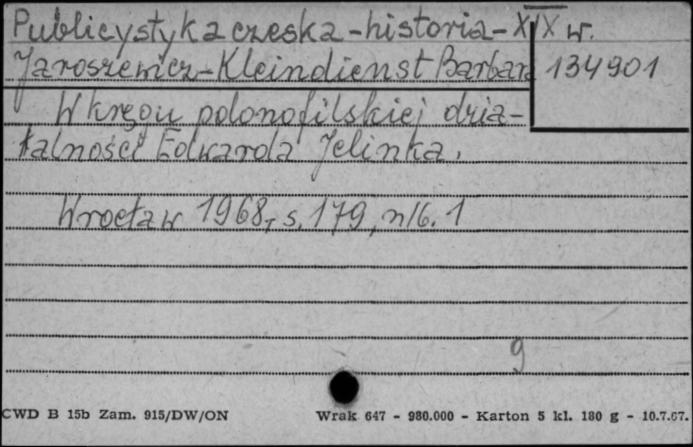 Publicystyka czeska - historia - XIX w.
Jaroszewicz-Kleindienst Barbara
134901
W kręgu polonofilskiej dzia-
łalności Edwarda Jelinka.
Wrocław 1968, s. 179, nlb. 1
9
CWD B 15b Zam. 915/DW/ON
Wrak 647 - 980.000 - Karton 5 kl. 180 g - 10.7.67.